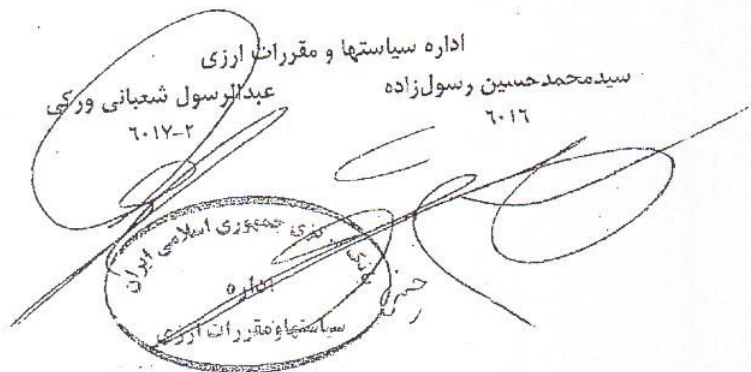 اداره سیاستها و مقررات ارزی
سیدمحمدحسین رسول‌زاده
۶۰۱۶
عبدالرسول شعبانی ورکی
۶۰۱۷-۲
بانک مرکزی جمهوری اسلامی ایران
اداره
سیاستها و مقررات ارزی